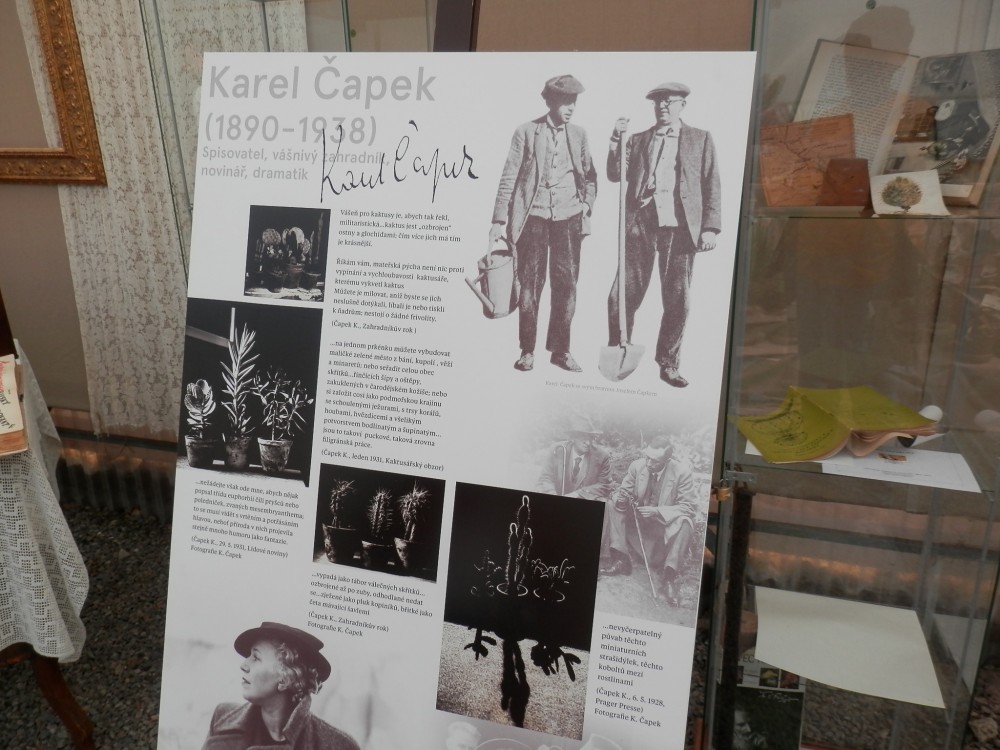 Karel Čapek
(1890–1938)
Spisovatel, vášnivý zahradník,
novinář, dramatik
Karel Čapek
Vášeň pro kaktusy je, abych tak řekl,
militaristická...kaktus jest „ozbrojen"
ostny a glochidami; čím více jich má tím
je krásnější.
Říkám vám, mateřská pýcha není nic proti
vypínání a vychloubavosti kaktusáře,
kterému vykvetl kaktus
Můžete je milovat, aniž byste se jich
neslušně dotýkali, líbali je nebo tiskli
k ňadrům; nestojí o žádné frivolity.
(Čapek K., Zahradníkův rok )
...na jednom prkénku můžete vybudovat
maličké zelené město z bání, kupolí , věží
a minaretů; nebo seřadit celou obec
skřítků...řinčících šípy a oštěpy,
zakuklených v čarodějském kožiše; nebo
si založit cosi jako podmořskou krajinu
se schoulenými ježurami, s trsy korálů,
houbami, hvězdicemi a všelikým
potvorstvem bodlinatým a šupinatým...
jsou to takoví puckové, taková zrovna
filigránská práce.
(Čapek K., leden 1931, Kaktusářský obzor)
...nežádejte však ode mne, abych nějak
popsal třídu euphorbií čili pryšců nebo
poledníček, zvaných mesembryanthema;
to se musí vidět s vrtěním a potřásáním
hlavou, neboť příroda v nich projevila
stejně mnoho humoru jako fantazie.
(Čapek K., 29. 5. 1931, Lidové noviny)
Fotografie K. Čapek
...vypadá jako tábor válečných skřítků...
ozbrojené až po zuby, odhodlané nedat
se...zježené jako pluk kopiníků, břitké jako
četa mávající šavlemi
(Čapek K., Zahradníkův rok)
Fotografie K. Čapek
...nevyčerpatelný
půvab těchto
miniaturních
strašidýlek, těchto
koboltů mezi
rostlinami
(Čapek K., 6. 5. 1928,
Prager Presse)
Fotografie K. Čapek